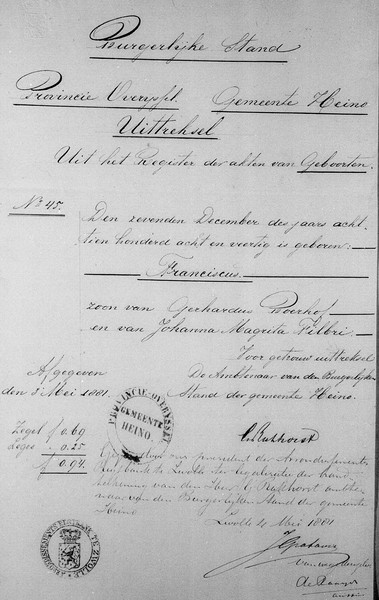 Burgerlijke Stand
Provincie Overyssel. Gemeente Heino
Uittreksel
Uit het Register der akten van Geboorten.
No. 45.
Den zevenden December des jaars acht-
tien honderd acht en veertig is geboren:
Franciscus.
zoon van Gerhardus Boerhof
en van Johanna Magrita Filbri.
Voor getrouw uittreksel
Afgegeven
den 3 Mei 1881.
De Ambtenaar van den Burgerlijken
Stand der gemeente Heino.
Zegel f 0.69
Leges - 0.25
f 0.94
PROVINCIE OVERYSSEL
GEMEENTE
HEINO.
Rukhorst
president der Arrondissements
Regtbank te Zwolle ter legalisatie der hand
van den Heer Rukhorst ambte
naar van den Burgerlijken Stand der gemeente
Heino
Zwolle 4 Mei 1881
ARRONDISSEMENTS TE ZWOLLE